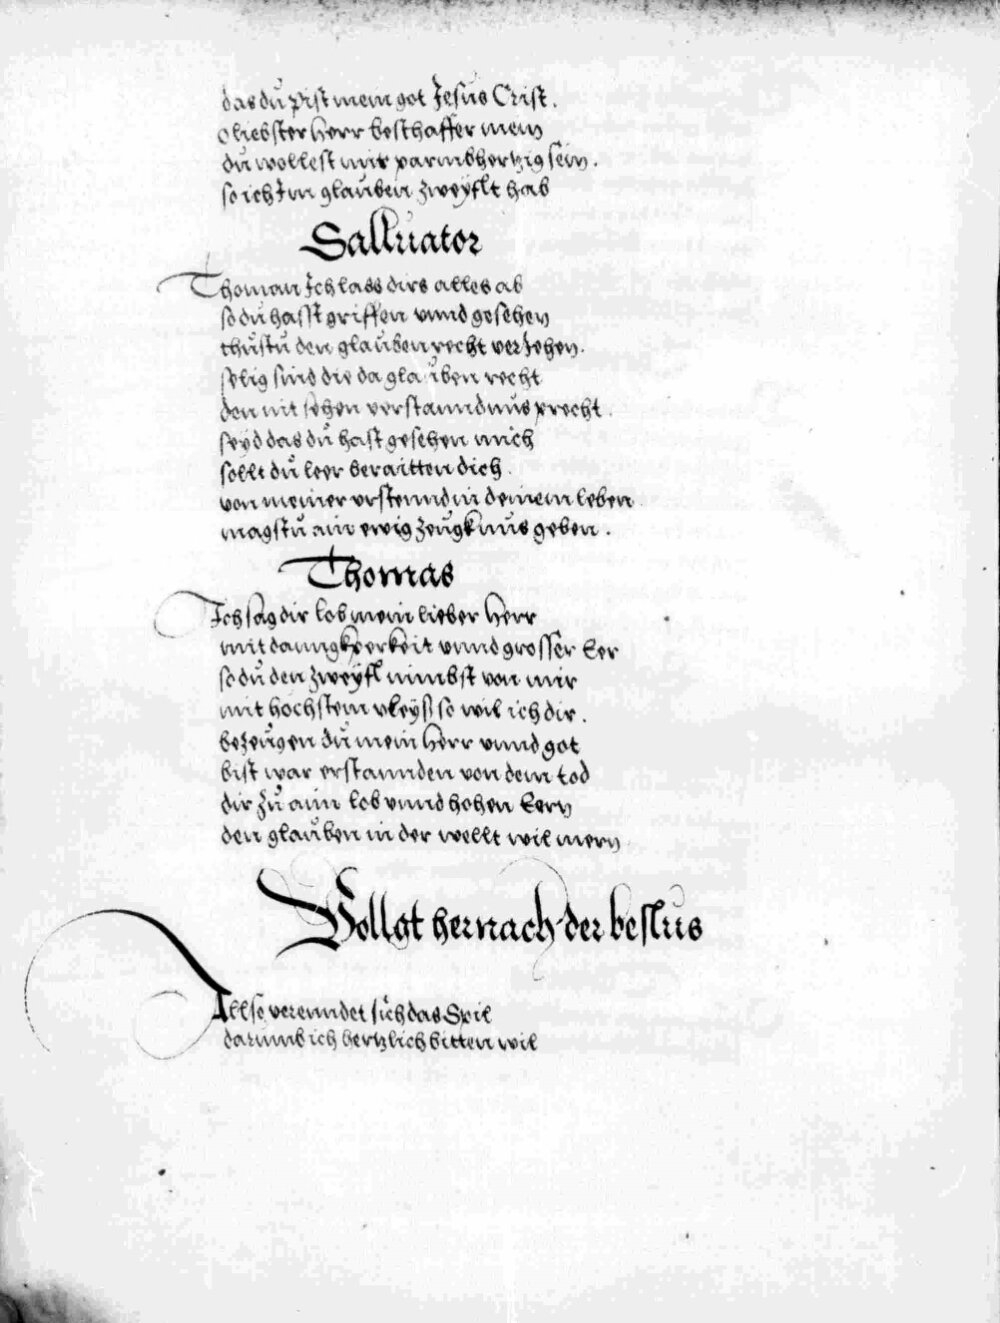 das dů pist mein got Jesus Crist.
o liebster herr beschaffer mein
du wollest mir parmbhertzig sein.
so ich Im glauben zweyflt hab
Salluator
Thoman Ich lass dirs alles ab
so dů hasst griffen vnnd gesehen
thůstu den glauben recht verJehen.
selig sind die da glauben recht
den nit sehen verstanndnus precht.
seyd das dů hast gesehen mich
sollt dů leer beraitten dich.
von meiner vrstennd in deinem leben
magstu ain ewig zeugknus geben.
Thomas
Ich sag dir lob mein lieber herr
mit danngkperkeit vnnd grosser Eer
so dů den zweyfl nimbst von mir
mit hochstem vleyß so wil ich dir.
bezeugen dů mein herr vnnd got
bist war erstannden von dem tod
dir zů ainn lob vnnd hohen Eern
den glauben in der wellt wil mern
Vollgt hernach der beslus
Allso verenndet sich das Spil
darumb ich hertzlich bitten wil